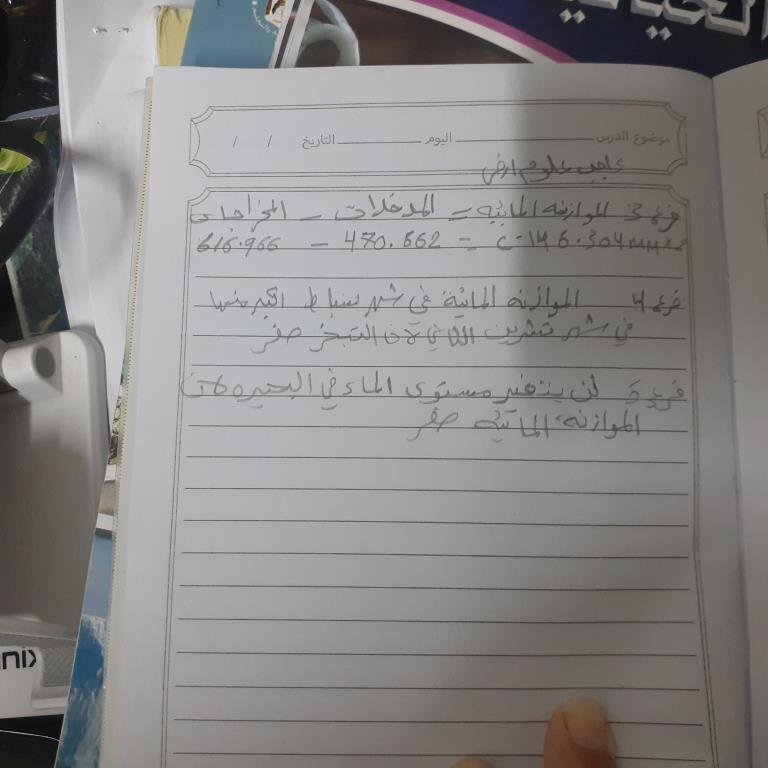 الحياتية
موضوع الدرس ــــــــ اليوم ــــــــ التاريخ / /
واجب علوم ارض
فرع 3 الموازنه المائيه = المدخلات - المخرجات
616.966 - 470.662 = 146.304mm
فرع 4 الموازنه المائية في شهر شباط اكبر منها
في شهر تشرين الثاني لان التبخر صفر
فرع 5 لن يتغير مستوى الماء في البحيره لان
الموازنه المائيه صفر